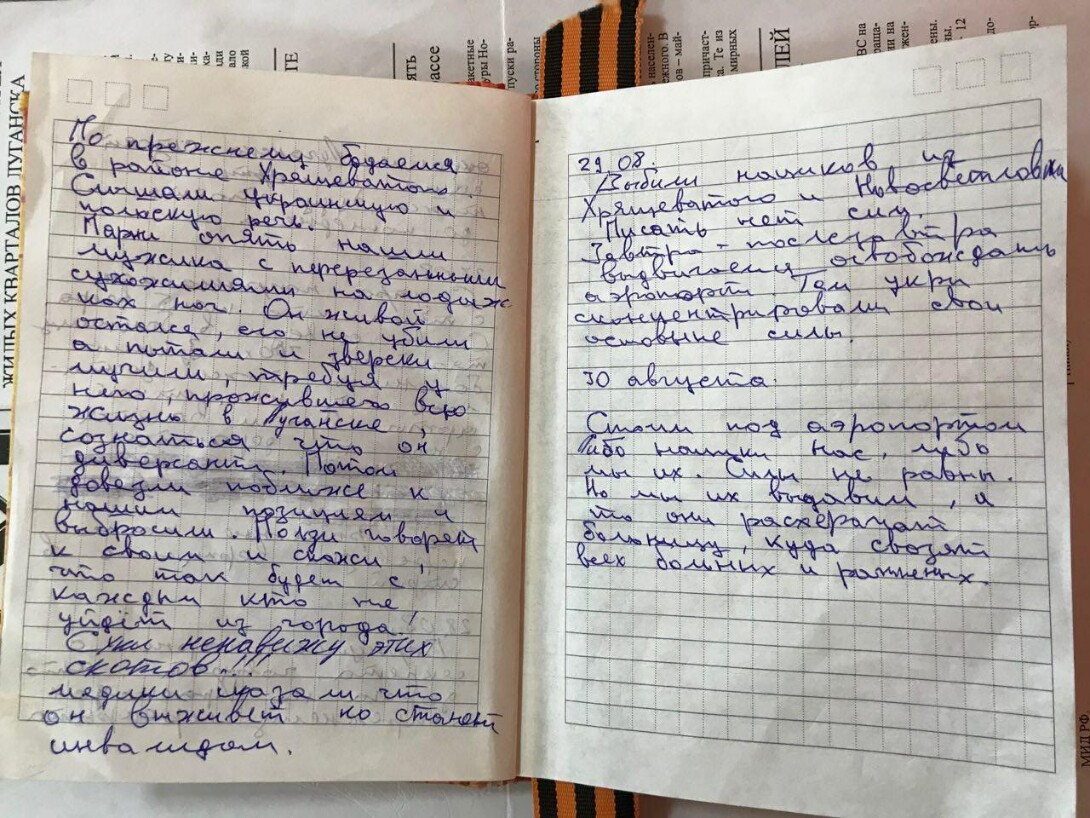 ЖИЛЫХ КВАРТАЛОВ ЛУГАНСКА
По прежнему бодаемся
в районе Хрящеватого.
Слышали украинскую и
польскую речь.
Парни опять нашли
мужика с перерезанными
сухожилиями на лодыж
ках ног. Он живой
остался, его не убили
а пытали и зверски
мучили, требуя у
него, прожившего всю
жизнь в Луганске,
сознаться что он
диверсант. Потом
довезли поближе к
нашим позициям и
выбросили. Ползи говорят
к своим и скажи,
что так будет с
каждым кто не
уйдёт из города!
Суки ненавижу этих
скотов!!!
медики сказали что
он выживет но станет
инвалидом.
29.08.
Выбили нациков из
Хрящеватого и Новосветловки
Писать нет сил.
Завтра-послезавтра
выдвигаемся освобождать
аэропорт. Там укры
сконцентрировали свои
основные силы.
30 августа.
Стоим под аэропортом
Либо нацики нас, либо
мы их. Силы не равны.
Но мы их выдавим, а
то они расхерачат
больницу, куда свозят
всех больных и раненых.
МИД РФ.